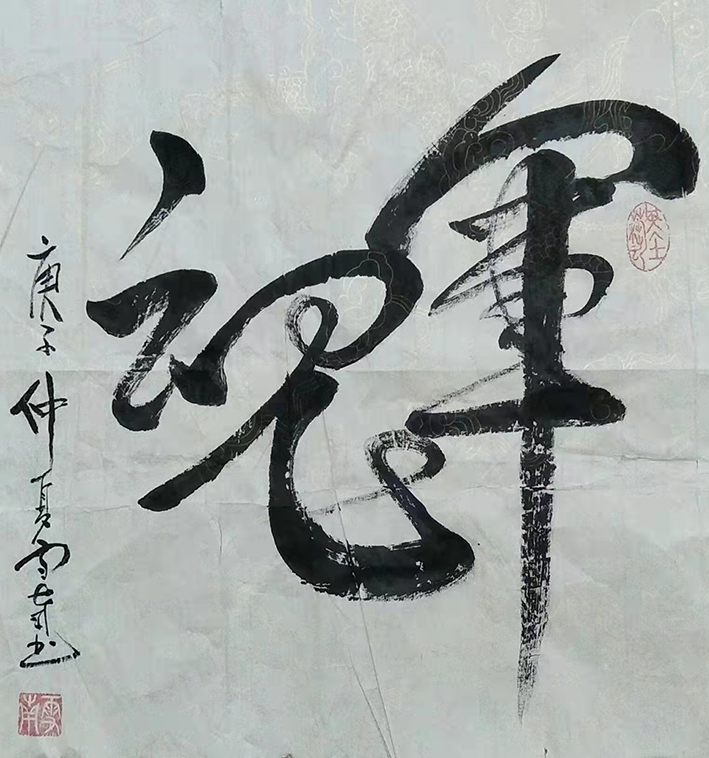 軍魂
庚子仲夏